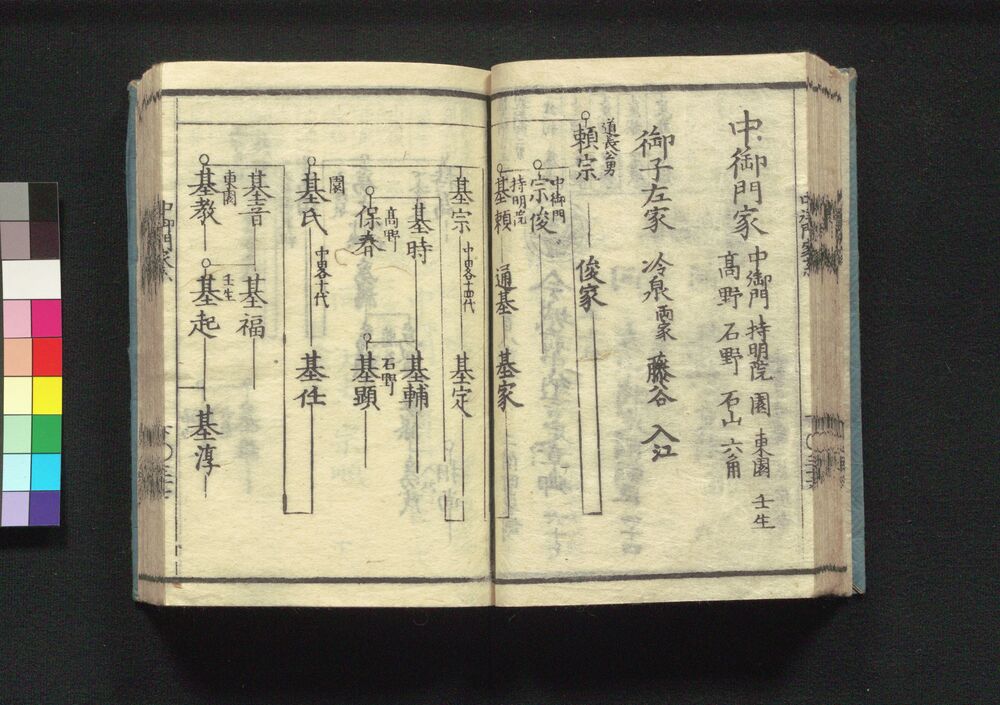 中御門家
中御門 持明院 園 東園 壬生
高野 石野 石山 六角
御子左家 冷泉両家 藤谷 入江
道長公男
頼宗 俊家
中御門
宗俊
持明院
基頼 通基 基家
中畧十四代
基宗 基定
基時 基輔
高野
保春
石野
基顕
園
基氏 中畧十代 基任
基音 基福
東園
基教
壬生
基起 基淳
中御門家